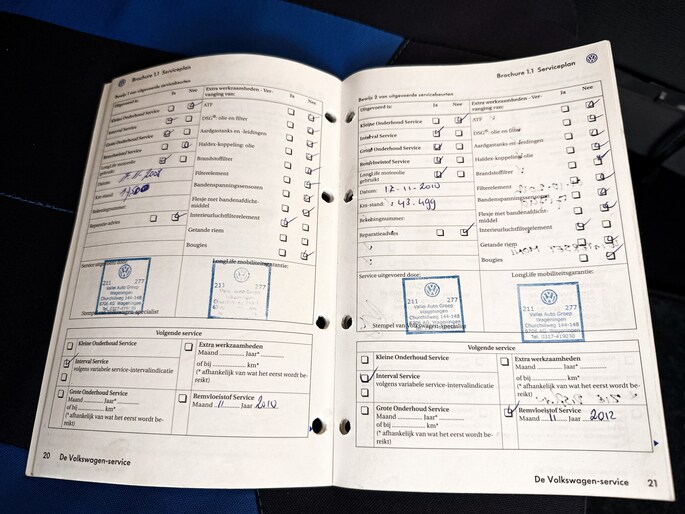 Brochure 1.1 Serviceplan
Bewijs 1 van uitgevoerde servicebeurten
Uitgevoerd is: Ja Nee
Kleine Onderhoud Service
Interval Service
Grote Onderhoud Service
Remvloeistof Service
LongLife motorolie
gebruikt
Datum:
Km-stand:
Rekeningnummer:
Reparatie-advies
Extra werkzaamheden - Ver-
vanging van: Ja Nee
ATF
DSG®-olie en filter
Aardgastanks en -leidingen
Haldex-koppeling: olie
Brandstoffilter
Filterelement
Bandenspanningssensoren
Flesje met bandenafdicht-
middel
Interieurluchtfilterelement
Getande riem
Bougies
Service uitgevoerd door:
LongLife mobiliteitsgarantie:
211 277
Vallei Auto Groep
Wageningen
Churchillweg 144-148
6706 AG Wageningen
211 277
Stempel van Volkswagen-specialist
Volgende service
Kleine Onderhoud Service
Interval Service
volgens variabele service-intervalindicatie
Grote Onderhoud Service
Maand Jaar*
of bij km*
(* afhankelijk van wat het eerst wordt be-
reikt)
Extra werkzaamheden
Maand Jaar*
of bij km*
(* afhankelijk van wat het eerst wordt be-
reikt)
Remvloeistof Service
Maand 11 Jaar 2010
20 De Volkswagen-service
Brochure 1.1 Serviceplan
Bewijs 2 van uitgevoerde servicebeurten
Uitgevoerd is: Ja Nee
Kleine Onderhoud Service
Interval Service
Grote Onderhoud Service
Remvloeistof Service
LongLife motorolie
gebruikt
Datum: 12-11-2010
Km-stand: 43.499
Rekeningnummer:
Reparatieadvies
Extra werkzaamheden - Ver-
vanging van: Ja Nee
ATF
DSG®-olie en filter
Aardgastanks en -leidingen
Haldex-koppeling: olie
Brandstoffilter
Filterelement
Bandenspanningssensoren
Flesje met bandenafdicht-
middel
Interieurluchtfilterelement
Getande riem
Bougies
Service uitgevoerd door:
LongLife mobiliteitsgarantie:
211 277
Vallei Auto Groep
Wageningen
Churchillweg 144-148
6706 AG Wageningen
211 277
Vallei Auto Groep
Wageningen
Churchillweg 144-148
6706 AG Wageningen
Tel. 0317-419030
Stempel van Volkswagen-specialist
Volgende service
Kleine Onderhoud Service
Interval Service
volgens variabele service-intervalindicatie
Grote Onderhoud Service
Maand Jaar*
of bij km*
(* afhankelijk van wat het eerst wordt be-
reikt)
Extra werkzaamheden
Maand Jaar*
of bij km*
(* afhankelijk van wat het eerst wordt be-
reikt)
Remvloeistof Service
Maand 11 Jaar 2012
De Volkswagen-service 21